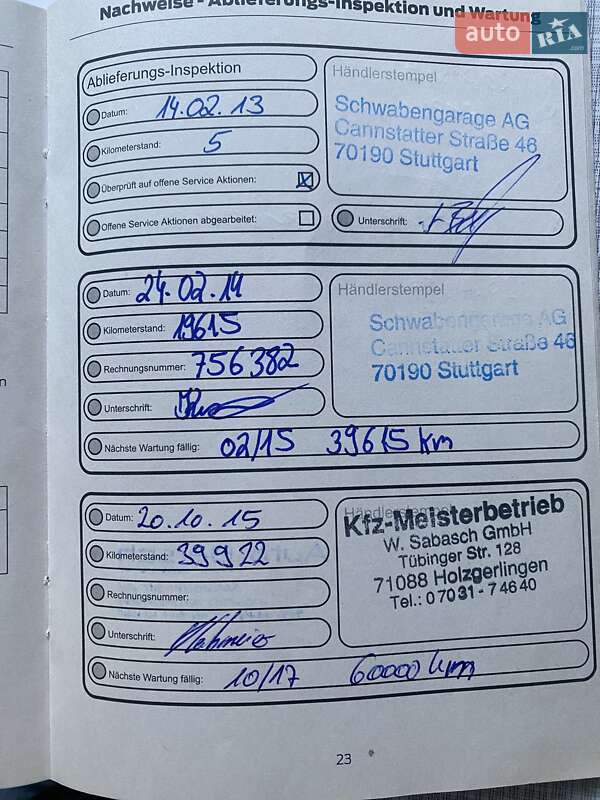 Nachweise - Ablieferungs-Inspektion und Wartung
auto RIA.com
Ablieferungs-Inspektion
Datum: 14.02.13
Kilometerstand: 5
Überprüft auf offene Service Aktionen:
Offene Service Aktionen abgearbeitet:
Händlerstempel
Schwabengarage AG
Cannstatter Straße 46
70190 Stuttgart
Unterschrift:
Datum: 24.02.14
Kilometerstand: 19615
Rechnungsnummer: 756382
Unterschrift:
Nächste Wartung fällig: 02/15 39615 km
Händlerstempel
Schwabengarage AG
Cannstatter Straße 46
70190 Stuttgart
Datum: 20.10.15
Kilometerstand: 39922
Rechnungsnummer:
Unterschrift:
Nächste Wartung fällig: 10/17 60000 km
Händlerstempel
Kfz-Meisterbetrieb
W. Sabasch GmbH
Tübinger Str. 128
71088 Holzgerlingen
Tel.: 07031-74640
n
23